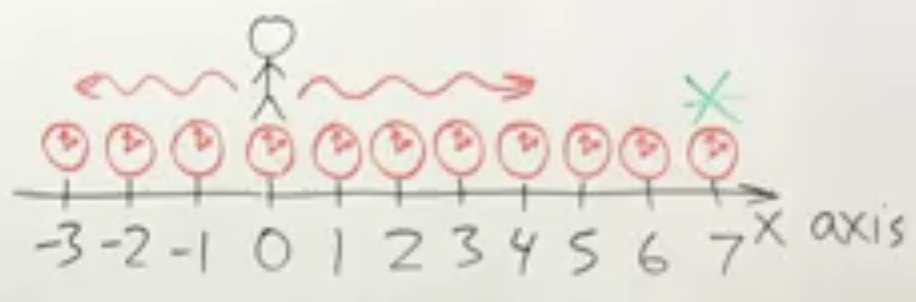 -3 -2 -1 0 1 2 3 4 5 6 7 X axis